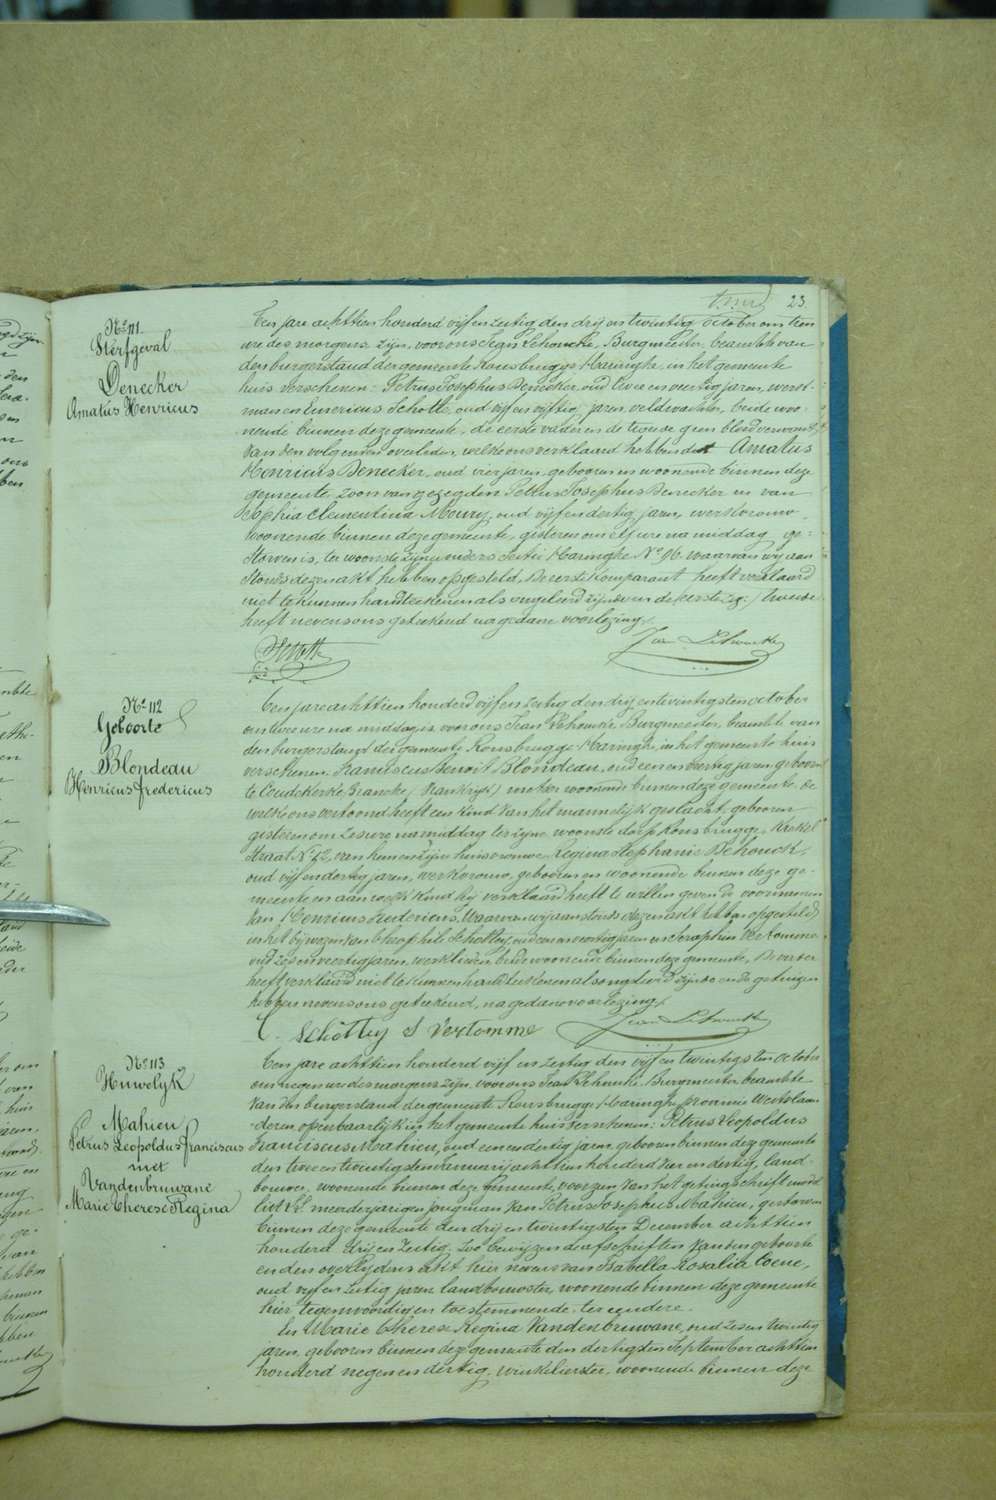 23.
N.º 111.
Sterfgeval
Denecker
Amatus Henricus
Een jare achttien honderd vijf en zestig den drij en twintig October om tien
ure des morgens, zijn, voor ons Jean Lehoucke, Burgmeester, beambte van
den burgerstand der gemeente Rousbrugge-Haringhe, in het gemeente
huis verschenen: Petrus Josephus Denecker, oud twee en veertig jaren, werk-
man en Emericus Schotte, oud vijf en vijftig jaren, veldwachter, beide woo-
nende binnen deze gemeente, de eerste vader en de tweede geen bloedverwant
van den volgenden overleden, welke ons verklaard hebben dat Amatus
Henricus Denecker, oud vier jaren, geboren en woonende binnen deze
gemeente, zoon van gezegden Petrus Josephus Denecker en van
Sophia Clementina Meury, oud vijf en dertig jaren, werkvrouw,
woonende binnen deze gemeente, gisteren om elf ure na middag ge-
storven is, ter woonste zijner ouders sectie Haringhe N.º 96. waarvan wij aan
stonds dezen akt hebben opgesteld, De eerste komparant heeft verklaard
niet te kunnen handteekenen als ongeleerd zijnde en de tweede
heeft nevens ons geteekend na gedane voorlezing.
Schotte
Jean Lehoucke
N.º 112
Geboorte
Blondeau
Henricus Fredericus
Een jare achttien honderd vijf en zestig den drij en twintigsten October
om twee ure na middag is voor ons Jean Lehoucke, Burgmeester, beambte van
den burgerstand der gemeente Rousbrugge-Haringhe, in het gemeente huis
verschenen Franciscus Benoit Blondeau, oud een en veertig jaren, geboren
te Coudekerke-Brancke (Frankrijk) werker woonende binnen deze gemeente, de
welke ons vertoond heeft een kind van het mannelijk geslacht, geboren
gisteren om zes ure na middag ter zijne woonste dorp Rousbrugge, Krekel
straat N.º 42, van hem en zijne huisvrouwe Regina Stephanie Dehouck,
oud vijf en dertig jaren, werkvrouw, geboren en woonende binnen deze ge-
meente en aan welk kind hij verklaard heeft te willen geven de voornamen
van Henricus Fredericus. Waarvan wij aanstonds dezen akt hebben opgesteld
in het bijwezen van Theophile Schottey, oud een en veertig jaren en Seraphin Vertomme
oud zes en veertig jaren, werklieden, beide woonende binnen deze gemeente, De vader
heeft verklaard niet te kunnen handteekenen als ongeleerd zijnde en de getuigen
hebben nevens ons geteekend, na gedane voorlezing.
T. Schottey S Vertomme Jean Lehoucke
N.º 113
Huwelijk
Mahieu
Petrus Leopoldus Franciscus
met
Vandenbruwane
Marie Therese Regina
Een jare achttien honderd vijf en zestig den vijf en twintigsten October
om negen ure des morgens zijn, voor ons Jean Lehoucke, Burgmeester, beambte
van den burgerstand der gemeente Rousbrugge-Haringhe, provincie Westvlaan-
deren, openbaarlijk in het gemeente huis verschenen: Petrus Leopoldus
Franciscus Mahieu, oud een en dertig jaren, geboren binnen deze gemeente
den twee en twintigsten January achttien honderd vier en dertig, land-
bouwer, woonende binnen deze gemeente, voorzien van het getuigschrift model
litt. L. meerderjarigen jongman van Petrus Josephus Mahieu, gestorven
binnen deze gemeente den drij en twintigsten December achttien
honderd drij en zestig, zoo bewijzen de afschriften van den geboorte
en den overlijdens akt hier nevens van Isabella Rosalia Coene,
oud vijf en zestig jaren, landbouwster, woonende binnen deze gemeente
hier tegenwoordig en toestemmende, ter eendere.
En Marie Therese Regina Vandenbruwane, oud zes en twintig
jaren, geboren binnen deze gemeente den dertigsten September achttien
honderd negen en dertig, winkelierster, woonende binnen deze